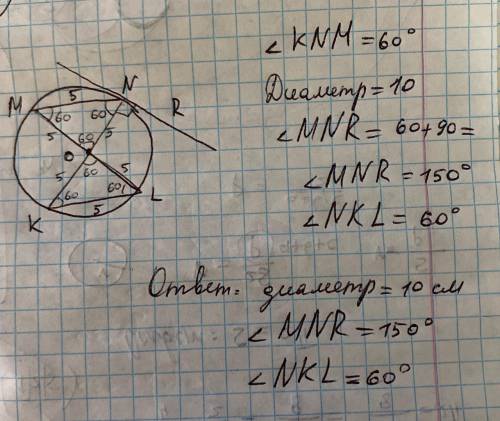 ∠KNM = 60°
Диаметр = 10
∠MNR = 60+90 =
∠MNR = 150°
∠NKL = 60°
M
N
R
O
K
L
5
60
60
5
5
60
60
5
5
60
60
5
Ответ: диаметр = 10 см
∠MNR = 150°
∠NKL = 60°